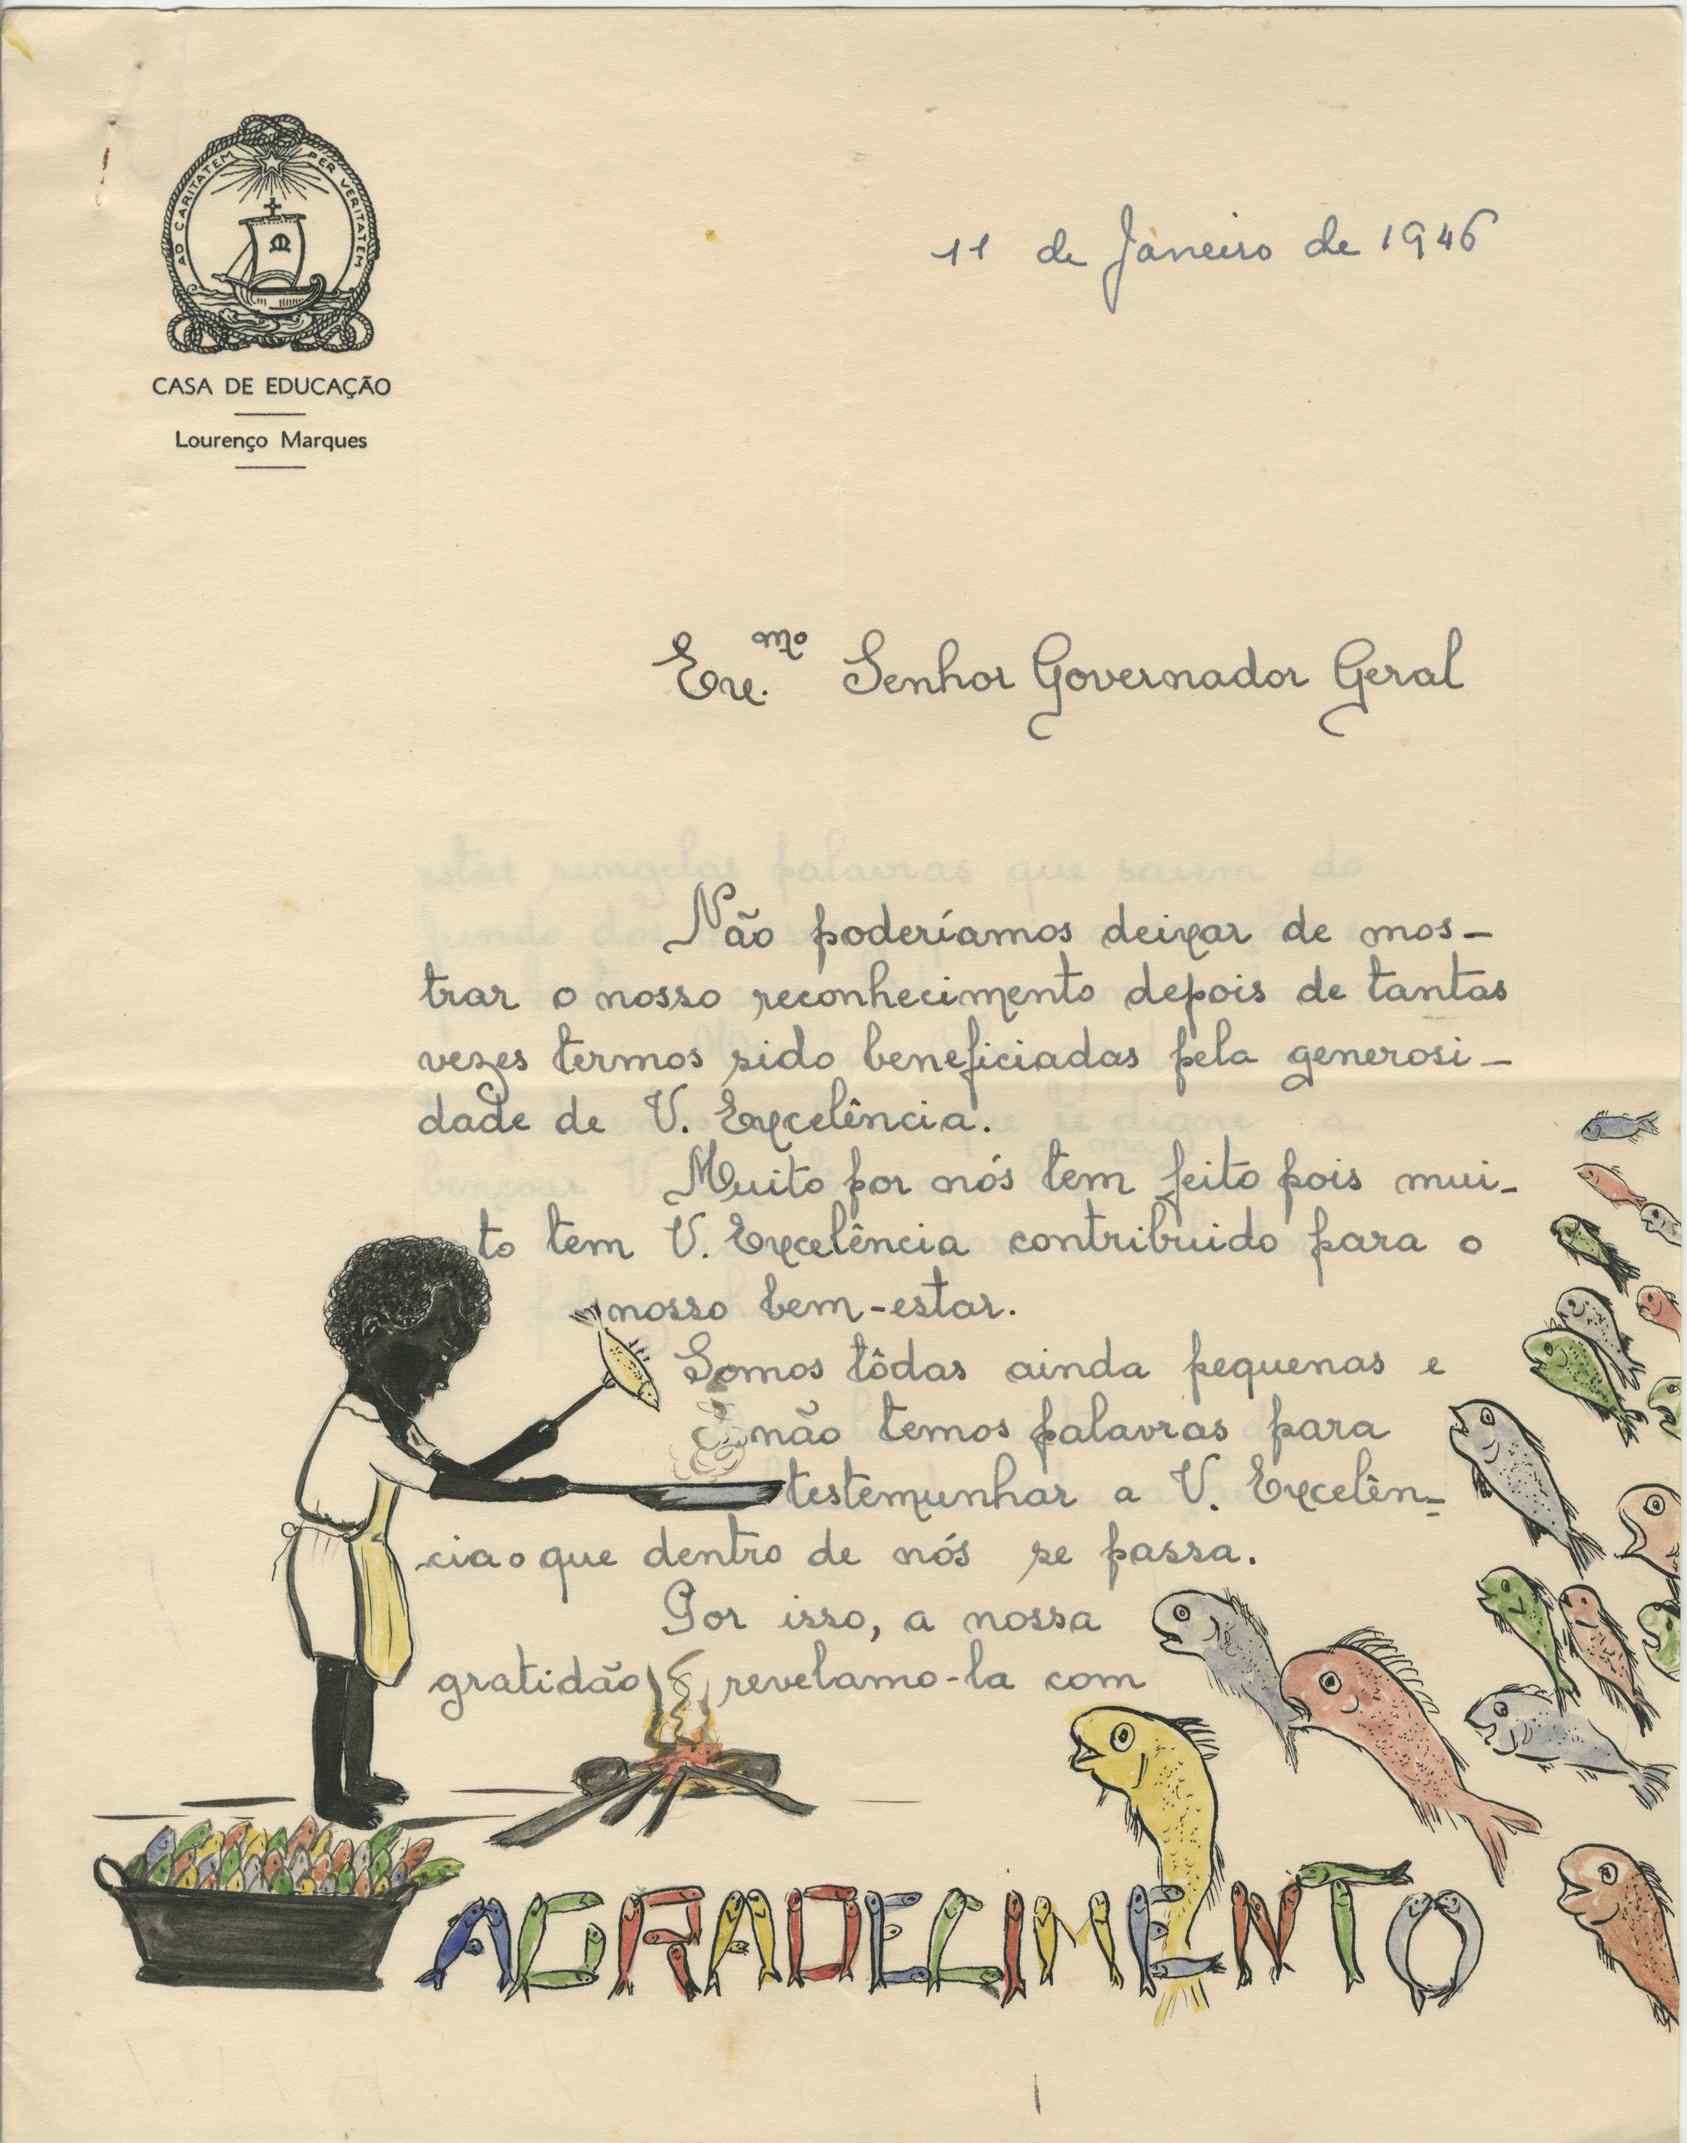 AD CARITATEM PER VERITATEM
M
CASA DE EDUCAÇÃO
Lourenço Marques
11 de Janeiro de 1946
Exe.mo Senhor Governador Geral
Não poderíamos deixar de mos-
trar o nosso reconhecimento depois de tantas
vezes termos sido beneficiadas pela generosi-
dade de V. Excelência.
Muito por nós tem feito pois mui-
to tem V. Excelência contribuido para o
nosso bem-estar.
Somos tôdas ainda pequenas e
não temos palavras para
testemunhar a V. Excelên-
cia o que dentro de nós se passa.
Por isso, a nossa
gratidão revelamo-la com
AGRADECIMENTO